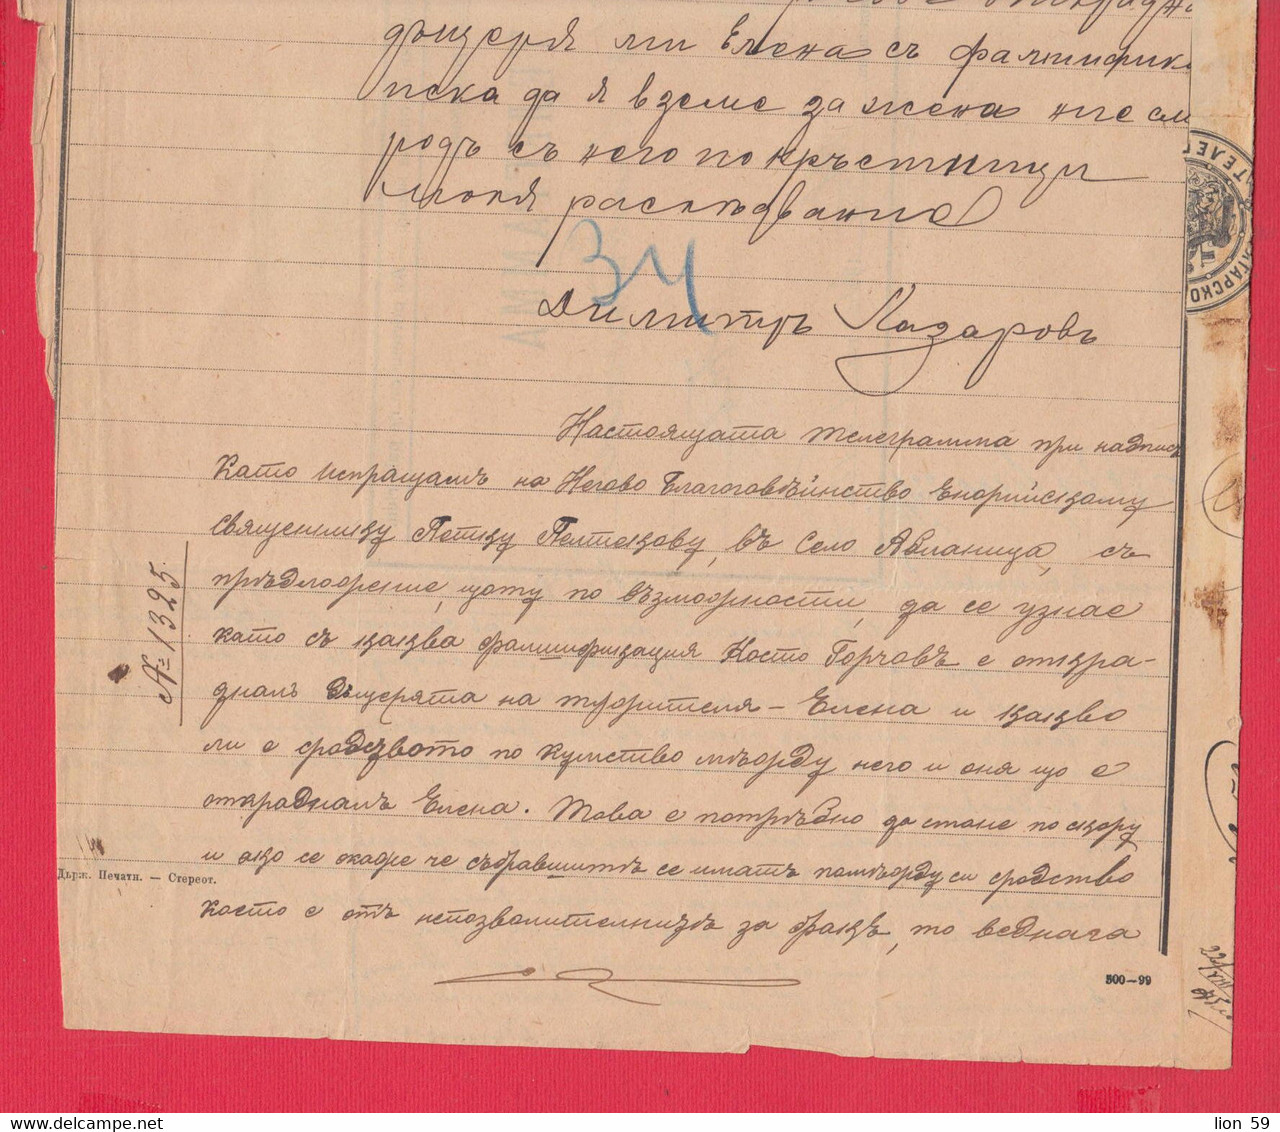 дъщеря ми Елена съ фалшифик
писка да я вземе за жена ние см
родъ съ него по кръстници
моля раследвание
34
Димитръ Лазаровъ
Настоящата телеграмма при надпис
като испращамъ на Негово Благоговѣинство Енорийскому
священнику Петку Пелтекову, въ Село Абланица, съ
прѣдложение, щото по възможности, да се узнае
като съ каква фалшификация Косто Горчовъ е открад-
налъ дъщерята на тѫжителя - Елена и какво
ли е сродството по кумство между него и оная що е
откраднал Елена. Това е потрѣбно да стане по скору
и ако се окаже че събравшитѣ се иматъ помѣжду си сродство
което е отъ непозволителнитѣ за бракъ, то веднага
№ 1325.
Държ. Печатн. — Стереот.
500—99